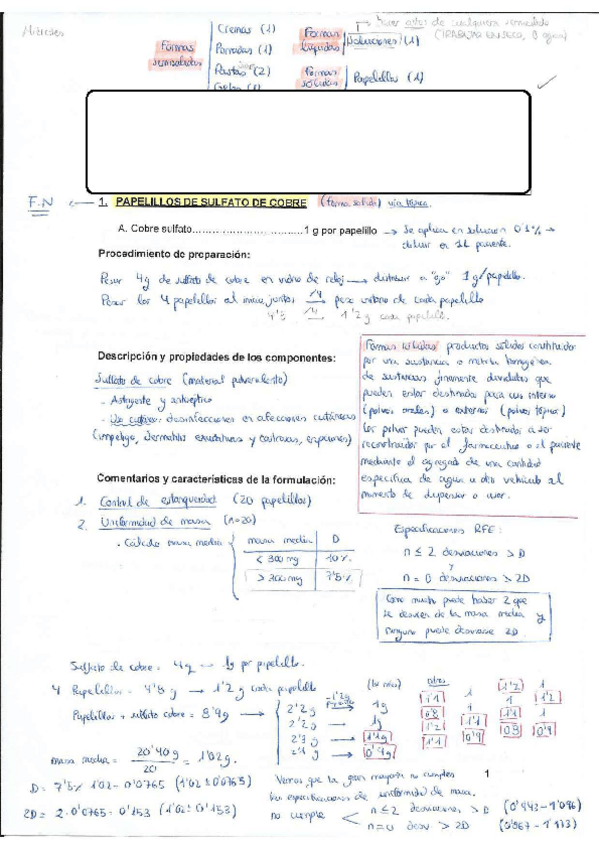 Miércoles
Formas semisólidas
Cremas (1)
Pomadas (1)
Pastas (2)
Geles (1)
Formas líquidas
Soluciones (1)
Formas sólidas
Papelillos (1)
F.N
1. PAPELILLOS DE SULFATO DE COBRE (forma sólida) vía tópica.
A. Cobre sulfato..............................1 g por papelillo → Se aplica en solución 0'1% →
diluir en 1L paciente.
Procedimiento de preparación:
Pesar 4g de sulfato de cobre en vidrio de reloj → distribuir a "ojo" 1g/papelillo.
Pesar los 4 papelillos al inicio, juntos /4 → peso unitario de cada papelillo
4'8 /4 → 1'2 g cada papelillo.
Descripción y propiedades de los componentes:
Sulfato de cobre (material pulverulento)
- Astringente y antiséptico
- Uso cutáneo: desinfecciones en afecciones cutáneas
(impétigo, dermatitis exudativas y costrosas, erosiones)
Formas sólidas productos sólidos constituidos
por una sustancia o mezcla homogénea
de sustancias finamente divididas que
pueden estar destinados para uso interno
(polvos orales) o externo (polvo tópico)
Los polvos pueden estar destinados a ser
reconstituidos por el farmacéutico o el paciente
mediante el agregado de una cantidad
específica de agua u otro vehículo al
momento de dispensar o usar.
Comentarios y características de la formulación:
1. Control de estanqueidad (20 papelillos)
2. Uniformidad de masa (n=20)
· Cálculo masa media
masa media D
< 300 mg 10%
> 300 mg 7'5%
Especificaciones RFE:
n ≤ 2 desviaciones > D
y
n = 0 desviaciones > 2D
Como mucho puede haber 2 que
se desvíen de la masa media y
ninguno puede desviarse 2D.
Sulfato de cobre = 4g → 1g por papelillo.
4 Papelillos = 4'8 g → 1'2 g cada papelillo
Papelillos + sulfato cobre = 8'9g →
2'2 g → 1g
2'2 g → 1g
2'3 g → 1'1g
2'1 g → 0'9g
(los míos)
otros
1'1 1 1'2 1
0'8 1 1 1'2
1'2 1'1 1'1 1
1'1 0'9 0'8 0'9
masa media = 20'40 g / 20 = 1'02 g.
D = 7'5% 1'02 = 0'0765 (1'02 ± 0'0765)
2D = 2·0'0765 = 0'153 (1'02 ± 0'153)
Vemos que la gran mayoría no cumplen
las especificaciones de uniformidad de masa.
no cumple
n ≤ 2 desviaciones > D (0'943-1'096)
n = 0 desv > 2D (0'867-1'173)
1